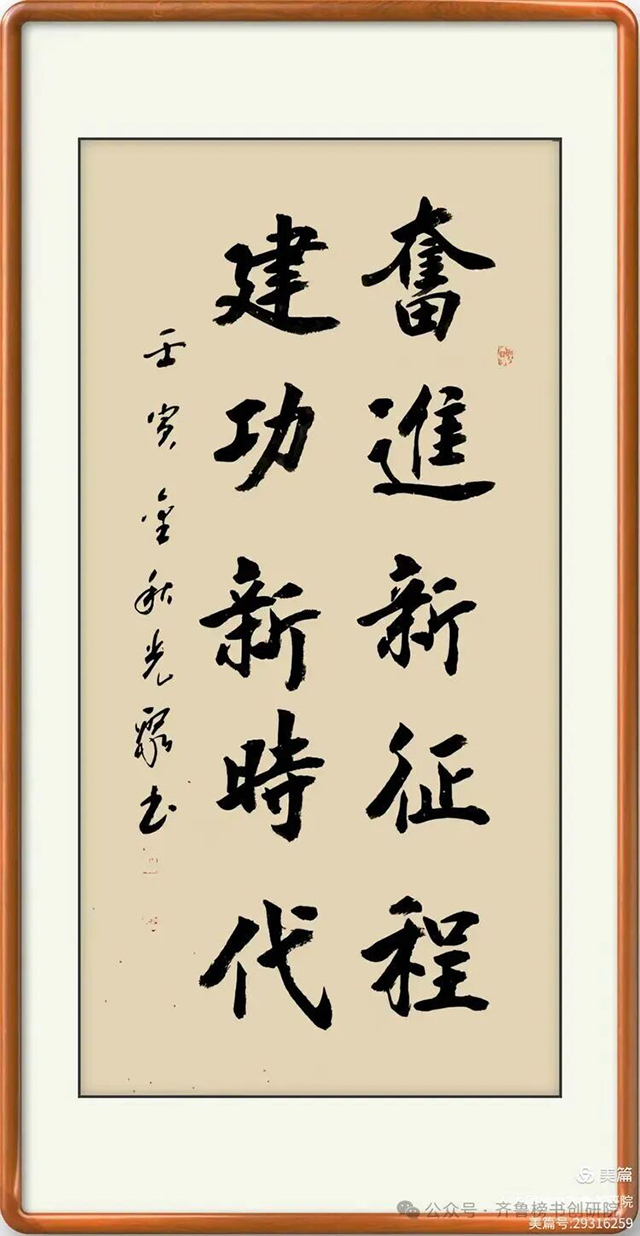 奮進新征程
建功新時代
壬寅金秋光聚书
美篇
公众号·齐鲁榜书创研院
美篇号:29316259